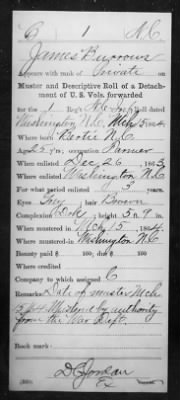 B 1 N.C.
James Burrows
Appears with rank of Private on
Muster and Descriptive Roll of a Detach-
ment of U. S. Vols. forwarded
for the 1 Reg't N.C. Roll dated
Washington N.C. Mch 15, 1864.
Where born Bertie N.C.
Age 23 y'rs; occupation Farmer
When enlisted Dec 26, 1863.
Where enlisted Washington N.C.
For what period enlisted 3 years.
Eyes Grey; hair Brown
Complexion Dark; 5 ft. 9 in.
When mustered in Mch 15, 1864.
Where mustered in Washington N.C.
Bounty paid $ 100; due $ 100
Where credited
Company to which assigned C
Remarks: Date of muster Mch
15, 64 Mustered by authority
from the War Dept.
Book mark:
D. C. Jordan